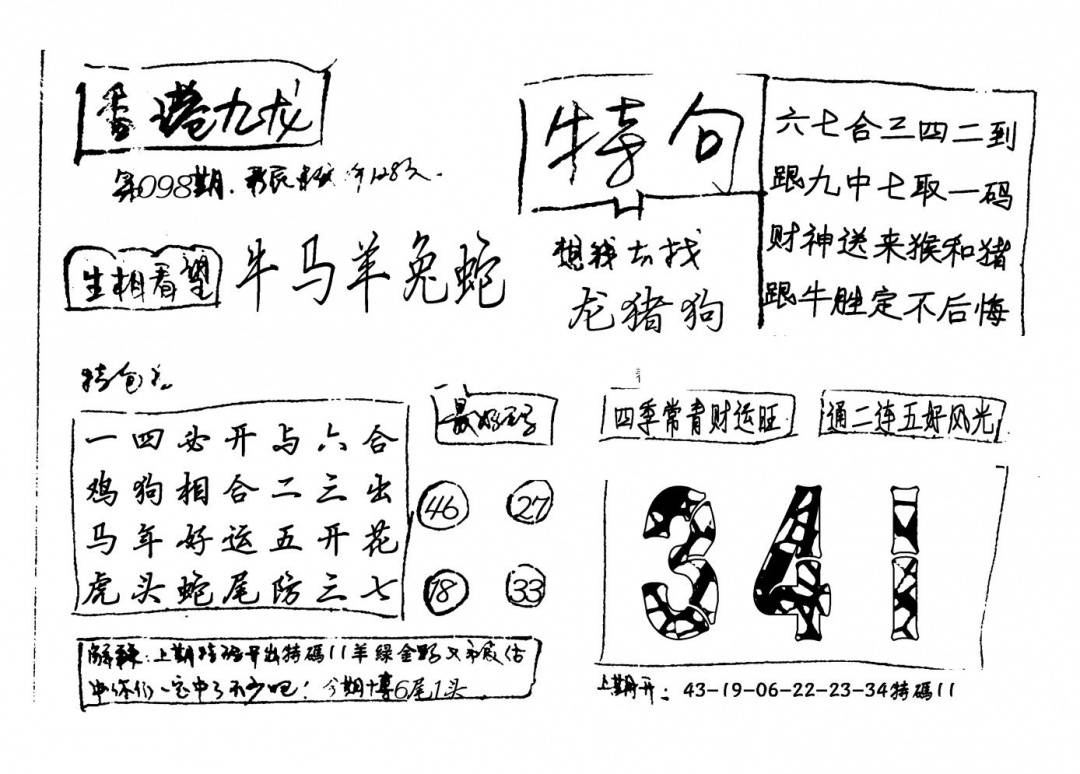 香港九龙
第098期
生相看望
牛马羊兔蛇
特句
想我去找
龙猪狗
六七合三四二到
跟九中七取一码
财神送来猴和猪
跟牛胜定不后悔
特包
一四必开与六合
鸡狗相合二三出
马年好运五开花
虎头蛇尾防三七
46 27
18 33
四季常青财运旺
通二连五好风光
341
解释:上期特码开出特碼11羊绿金野又
中你们一定中了不少吧!今期博6尾1头
上期开:43-19-06-22-23-34特碼11